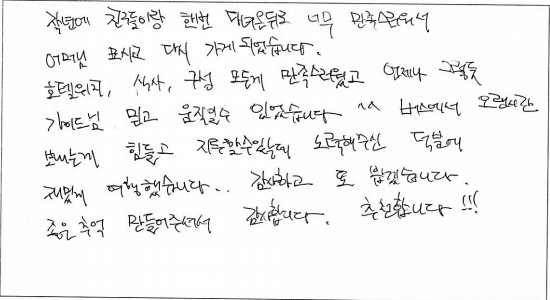 작년에 친구들이랑 한번 다녀온뒤로 너무 만족스러워서
어머님 모시고 다시 가게 되었습니다.
호텔위치, 식사, 구성 모든게 만족스러웠고 언제나 그렇듯
가이드님 믿고 움직일수 있었습니다 ^^ 버스에서 오랜시간
보내는게 힘들고 지루할수있는데 노력해주신 덕분에
재밌게 여행했습니다.. 감사하고 또 뵙겠습니다.
좋은 추억 만들어주셔서 감사합니다. 추천합니다!!!